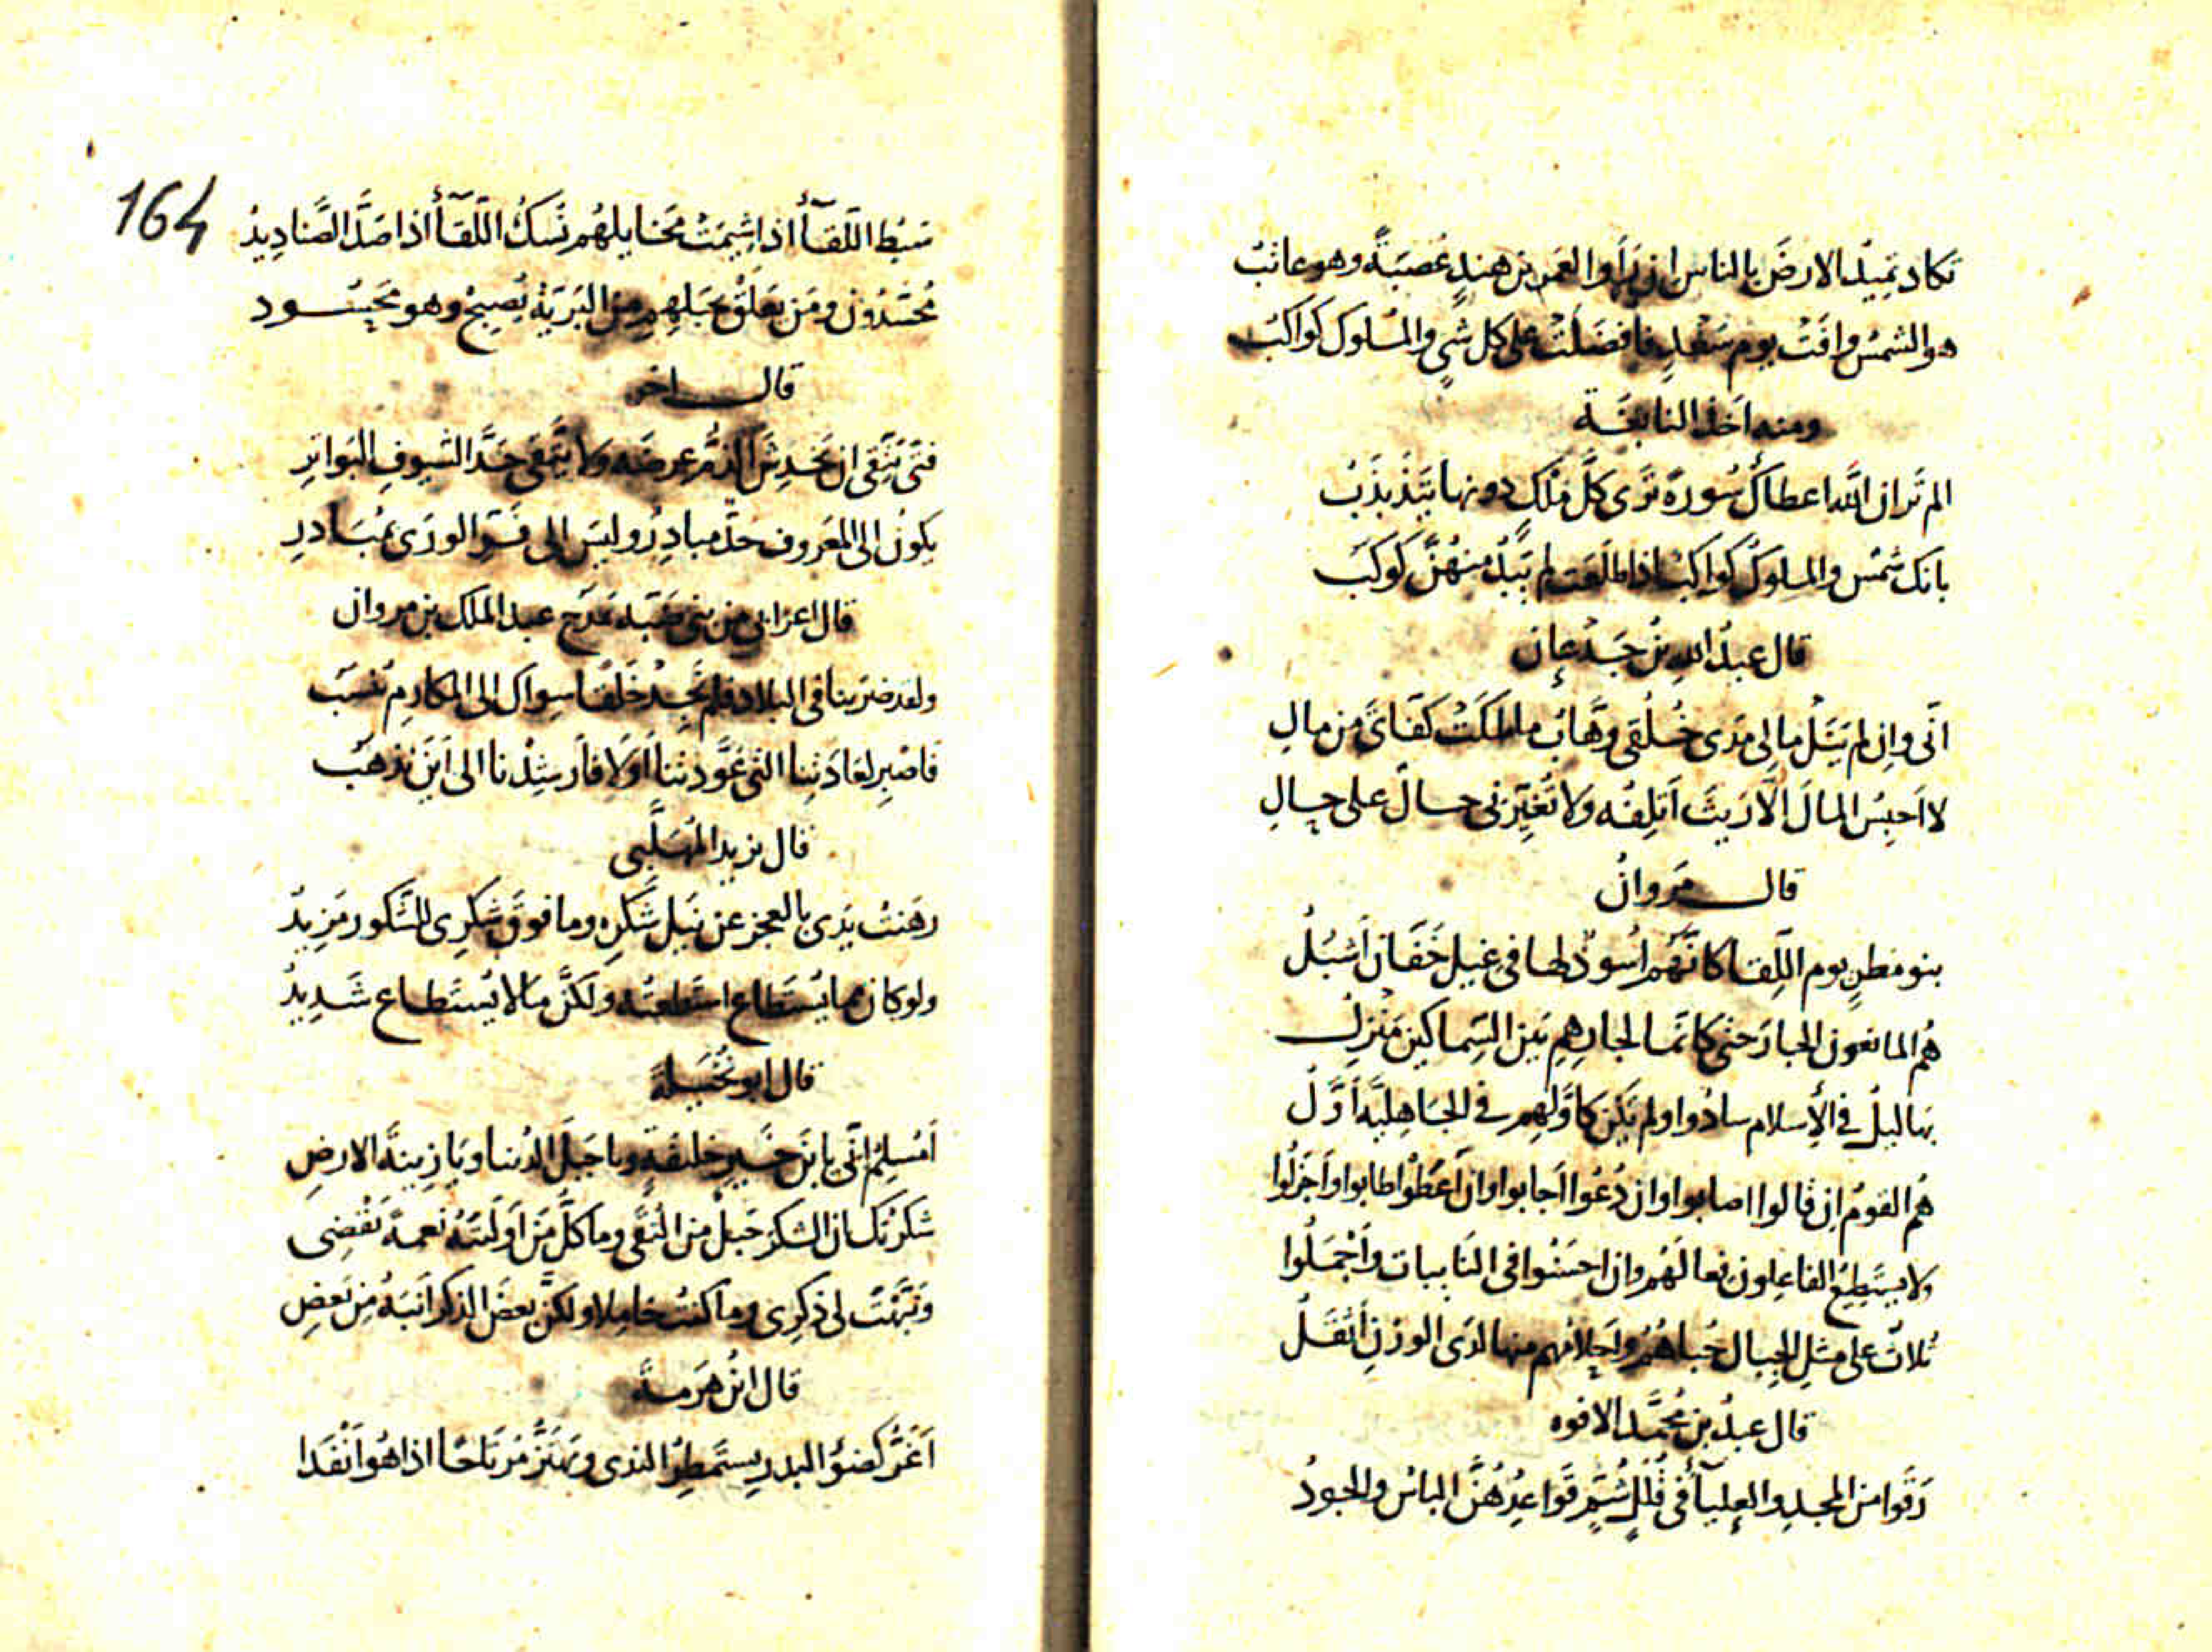 تكاد تميد الارض بالناس ان رأوا لعمرو بن هند عصبة وهو عاتب
هو الشمس وافت يوم سعد فافضلت على كل شي والملوك كواكب
ومنه اخذ النابغة
الم تر ان الله اعطاك سورة ترى كل ملك دونها يتذبذب
بانك شمس والملوك كواكب اذا طلعت لم يبد منهن كوكب
قال عبد الله بن جدعان
انى وان لم ينل مالى مدى خلقى وهاب ما ملكت كفاى من مال
لا احبس المال الا ريث اتلفه ولا تغيرنى حال على حال
قال مروان
بنو مطر يوم اللقا كانهم اسود لها فى غيل خفان اشبل
هم المانعون الجار حتى كانما لجارهم بين السماكين منزل
بهاليل فى الإسلام سادوا ولم يكن كاولهم فى الجاهلية اول
هم القوم ان قالوا اصابوا وان دعوا اجابوا وان اعطوا اطابوا واجزلوا
ولا يستطيع الفاعلون فعالهم وان احسنوا فى النايبات واجملوا
ثلاث على مثل الجبال حباهم واحلامهم منها لدى الوزن اثقل
قال عبد بن محمد الافوه
رقوا من المجد والعليآء فى قلل شم قواعدهن الباس والجود
164
سبط اللقآء اذا شيمت مخايلهم نسك اللقآء اذا صد الصناديد
محسدون ومن يعلق بحبلهم من البرية يصبح وهو محسود
قال اخر
فتى يتقى ان يخدش الذم عرضه ولا يتقى حد السيوف البواتر
يكون الى المعروف جد مبادر وليس الى الورى بمبادر
قال اعرابى من بنى ضبة يمدح عبد الملك بن مروان
ولقد ضربنا فى البلاد فلم نجد خلقا سواك الى المكارم ينسب
فاصبر لعادتنا التى عودتنا او لا فارشدنا الى اين نذهب
قال يزيد المهلبى
رهنت يدى بالعجز عن نيل شكره وما فوق شكرى للشكور مزيد
ولو كان مما يستطاع استطعته ولكن ما لا يستطاع شديد
قال ابو نخيلة
امسلم انى يا بن خير خليفة ويا جبل الدنيا ويا زينة الارض
شكرتك ان الشكر حبل من التقى وما كل من اوليته نعمة يقضى
ونبهت لى ذكرى وما كنت خاملا ولكن بعض الذكر انبه من بعض
قال ابن هرمة
اغر كضوء البدر يستمطر الندى ويهتز مرتاحا اذا هو انفدا